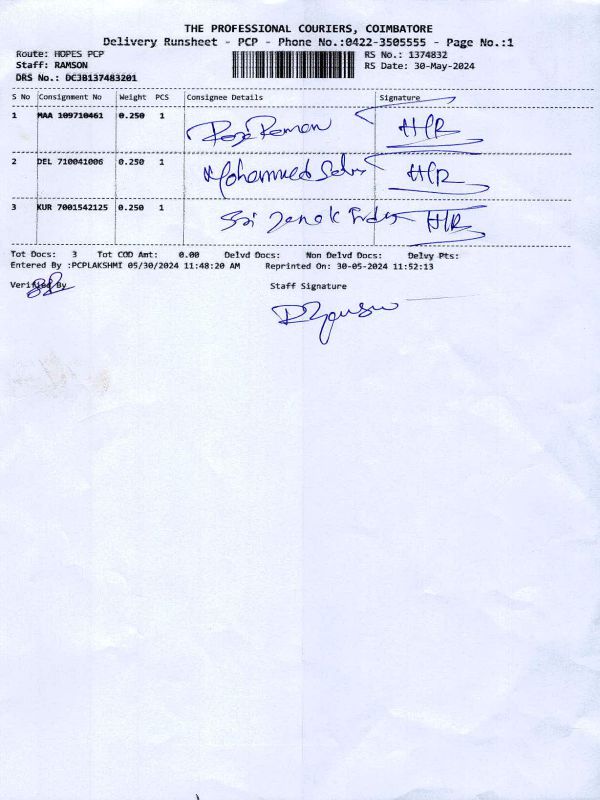 THE PROFESSIONAL COURIERS, COIMBATORE
Delivery Runsheet - PCP - Phone No.:0422-3505555 - Page No.:1
Route: HOPES PCP RS No.: 1374832
Staff: RAMSON RS Date: 30-May-2024
DRS No.: DCJB137483201
S No Consignment No Weight PCS Consignee Details Signature
1 MAA 109710461 0.250 1 Raman HR
2 DEL 710041006 0.250 1 Mohammed HR
3 KUR 7001542125 0.250 1 Sri HR
Tot Docs: 3 Tot COD Amt: 0.00 Delvd Docs: Non Delvd Docs: Delvy Pts:
Entered By :PCPLAKSHMI 05/30/2024 11:48:20 AM Reprinted On: 30-05-2024 11:52:13
Verified By Staff Signature